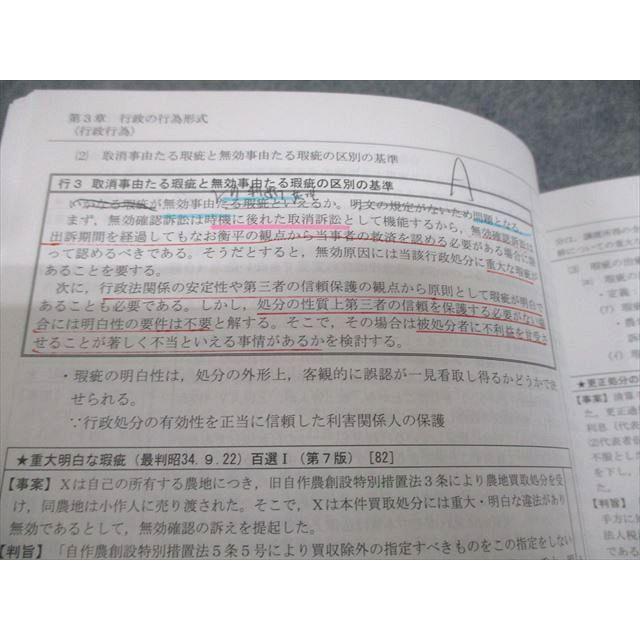 第3章 行政の行為形式
(行政行為)
(2) 取消事由たる瑕疵と無効事由たる瑕疵の区別の基準
A
行3 取消事由たる瑕疵と無効事由たる瑕疵の区別の基準
いかなる瑕疵が無効事由たる瑕疵といえるか。明文の規定がないため問題となる。
まず,無効確認訴訟は時機に後れた取消訴訟として機能するから,無効確認訴訟は
出訴期間を経過してもなお衡平の観点から当事者の救済を認める必要がある場合に限
って認めるべきである。そうだとすると,無効原因には当該行政処分に重大な瑕疵が
あることを要する。
次に,行政法関係の安定性や第三者の信頼保護の観点から原則として瑕疵が明白で
あることも必要である。しかし,処分の性質上第三者の信頼を保護する必要がない場
合には明白性の要件は不要と解する。そこで,その場合は被処分者に不利益を甘受さ
せることが著しく不当といえる事情があるかを検討する。
・瑕疵の明白性は,処分の外形上,客観的に誤認が一見看取し得るかどうかで決
せられる。
∵行政処分の有効性を正当に信頼した利害関係人の保護
★重大明白な瑕疵(最判昭34.9.22)百選Ⅰ(第7版)[82]
【事案】Xは自己の所有する農地につき,旧自作農創設特別措置法3条により農地買収処分を受
け,同農地は小作人に売り渡された。そこで,Xは本件買収処分には重大・明白な違法があり
無効であるとして,無効確認の訴えを提起した。
【判旨】「自作農創設特別措置法5条5号により買収除外の指定すべきものをこの指定をしない
★更正処分の
【事案】
【判旨】